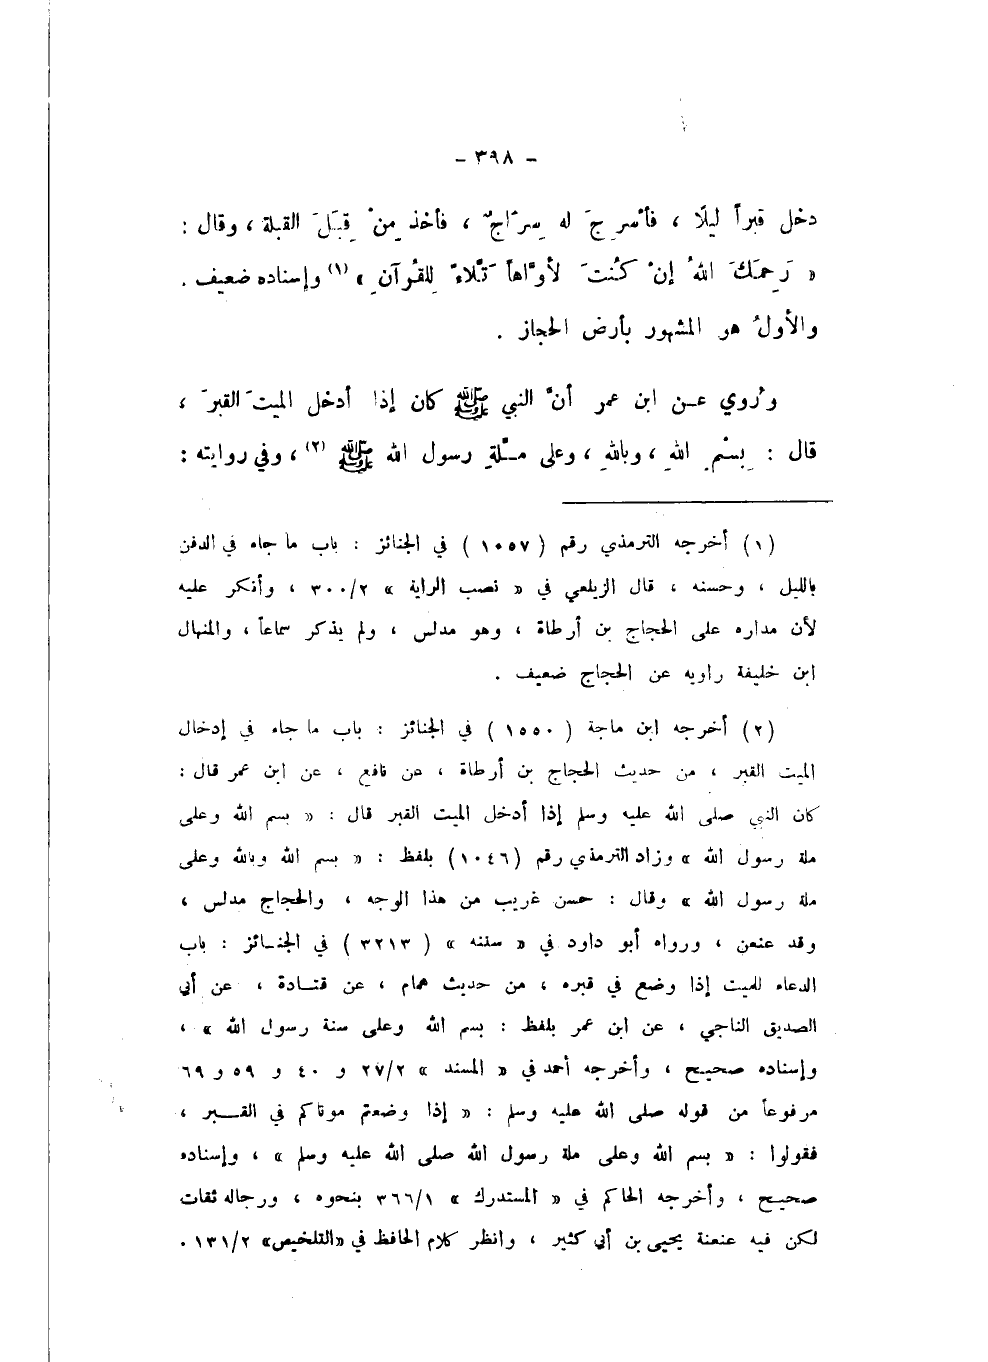 - ٣٩٨ -
دخل قبراً ليلًا ، فأُسْرِجَ له سِرَاجٌ ، فأخذ مِنْ قِبَلَ القبلة ، وقال :
« رَحِمَكَ اللهُ إنْ كُنْتَ لأوَّاهاً تَلَّاءً لِلقُرآنِ » (١) وإسناده ضعيف .
والأولُ هو المشهور بأرض الحجاز .
ورُوي عـن ابن عمر أنَّ النبي ﷺ كان إذا أدخل الميتَ القبرَ ،
قال : بِسْمِ اللهِ ، وباللهِ ، وعلى مِـلَّةِ رسول الله ﷺ (٢) ، وفي روايته :
(١) أخرجه الترمذي رقم ( ١٠٥٧ ) في الجنائز : باب ما جاء في الدفن
بالليل ، وحسنه ، قال الزيلعي في « نصب الراية » ٣٠٠/٢ ، وأنكر عليه
لأن مداره على الحجاج بن أرطاة ، وهو مدلس ، ولم يذكر سماعاً ، والمنهال
ابن خليفة راويه عن الحجاج ضعيف .
(٢) أخرجه ابن ماجة ( ١٥٥٠ ) في الجنائز : باب ما جاء في إدخال
الميت القبر ، من حديث الحجاج بن أرطاة ، عن نافع ، عن ابن عمر قال :
كان النبي صلى الله عليه وسلم إذا أدخل الميت القبر قال : « بسم الله وعلى
ملة رسول الله » وزاد الترمذي رقم (١٠٤٦) بلفظ : « بسم الله وبالله وعلى
ملة رسول الله » وقال : حسن غريب من هذا الوجه ، والحجاج مدلس ،
وقد عنعن ، ورواه أبو داود في « سننه » ( ٣٢١٣ ) في الجنـائز : باب
الدعاء للميت إذا وضع في قبره ، من حديث همام ، عن قتـادة ، عن أبي
الصديق الناجي ، عن ابن عمر بلفظ : بسم الله وعلى سنة رسول الله » ،
وإسناده صحيح ، وأخرجه أحمد في « المسند » ٢٧/٢ و ٤٠ و ٥٩ و ٦٩
مرفوعاً من قوله صلى الله عليه وسلم : « إذا وضعتم موتاكم في القـــبر ،
فقولوا : « بسم الله وعلى ملة رسول الله صلى الله عليه وسلم » ، وإسناده
صحيح ، وأخرجه الحاكم في « المستدرك » ٣٦٦/١ بنحوه ، ورجاله ثقات
لكن فيه عنعنة يحيى بن أبي كثير ، وانظر كلام الحافظ في «التلخيص» ١٣١/٢ .